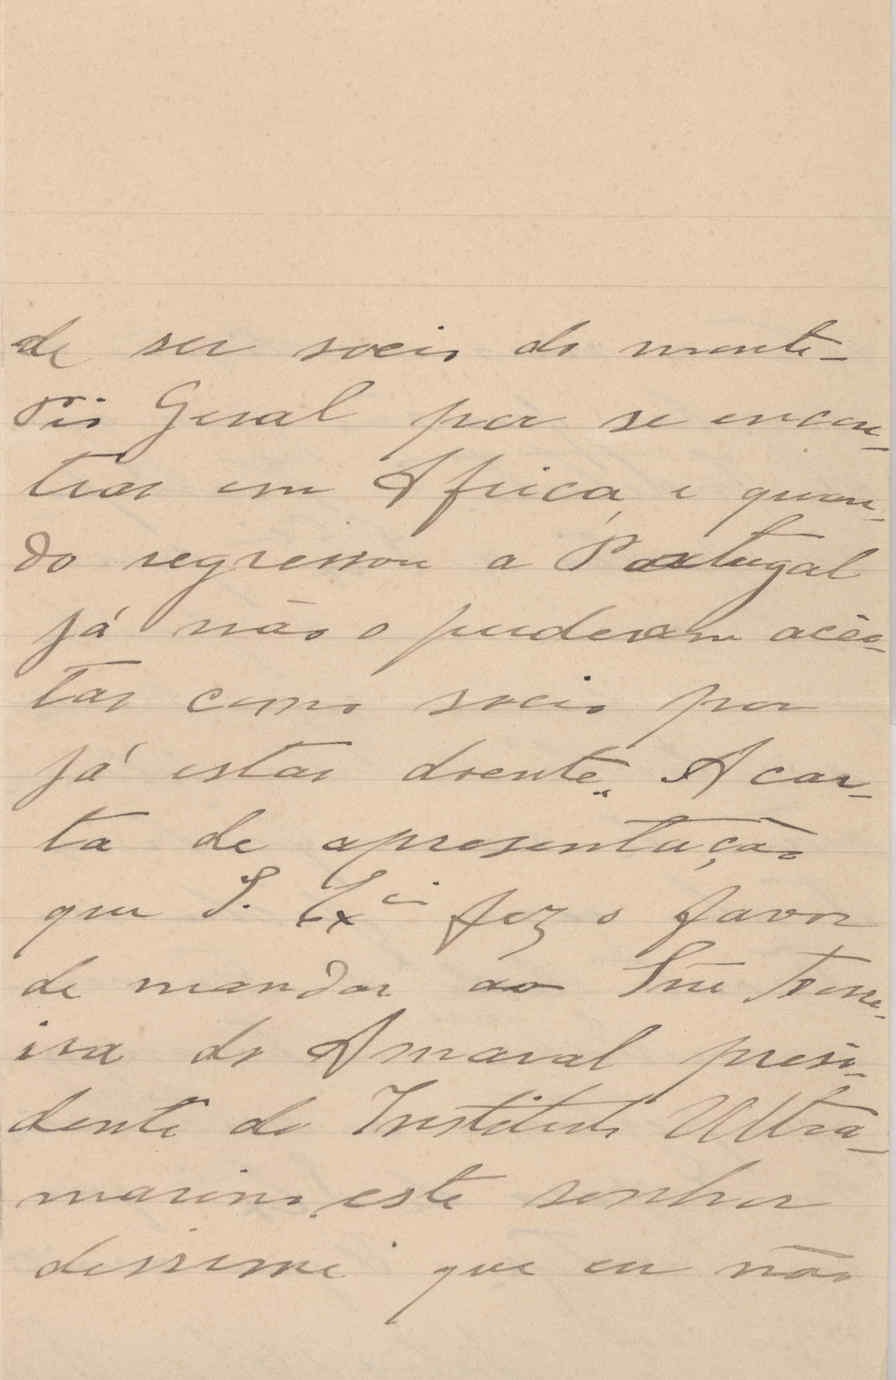 de ser socio do monte-
Pio Geral por se encon-
trar em Africa, e quan-
do regressou a Portugal
já não o puderam acei-
tar como socio por
já estar doente. A car-
ta de apresentação
que S. Ex.cia fez o favor
de mandar ao Snr Ferre-
ira do Amaral presi-
dente do Instituto Ultra-
marino, este senhor
dissime que eu não